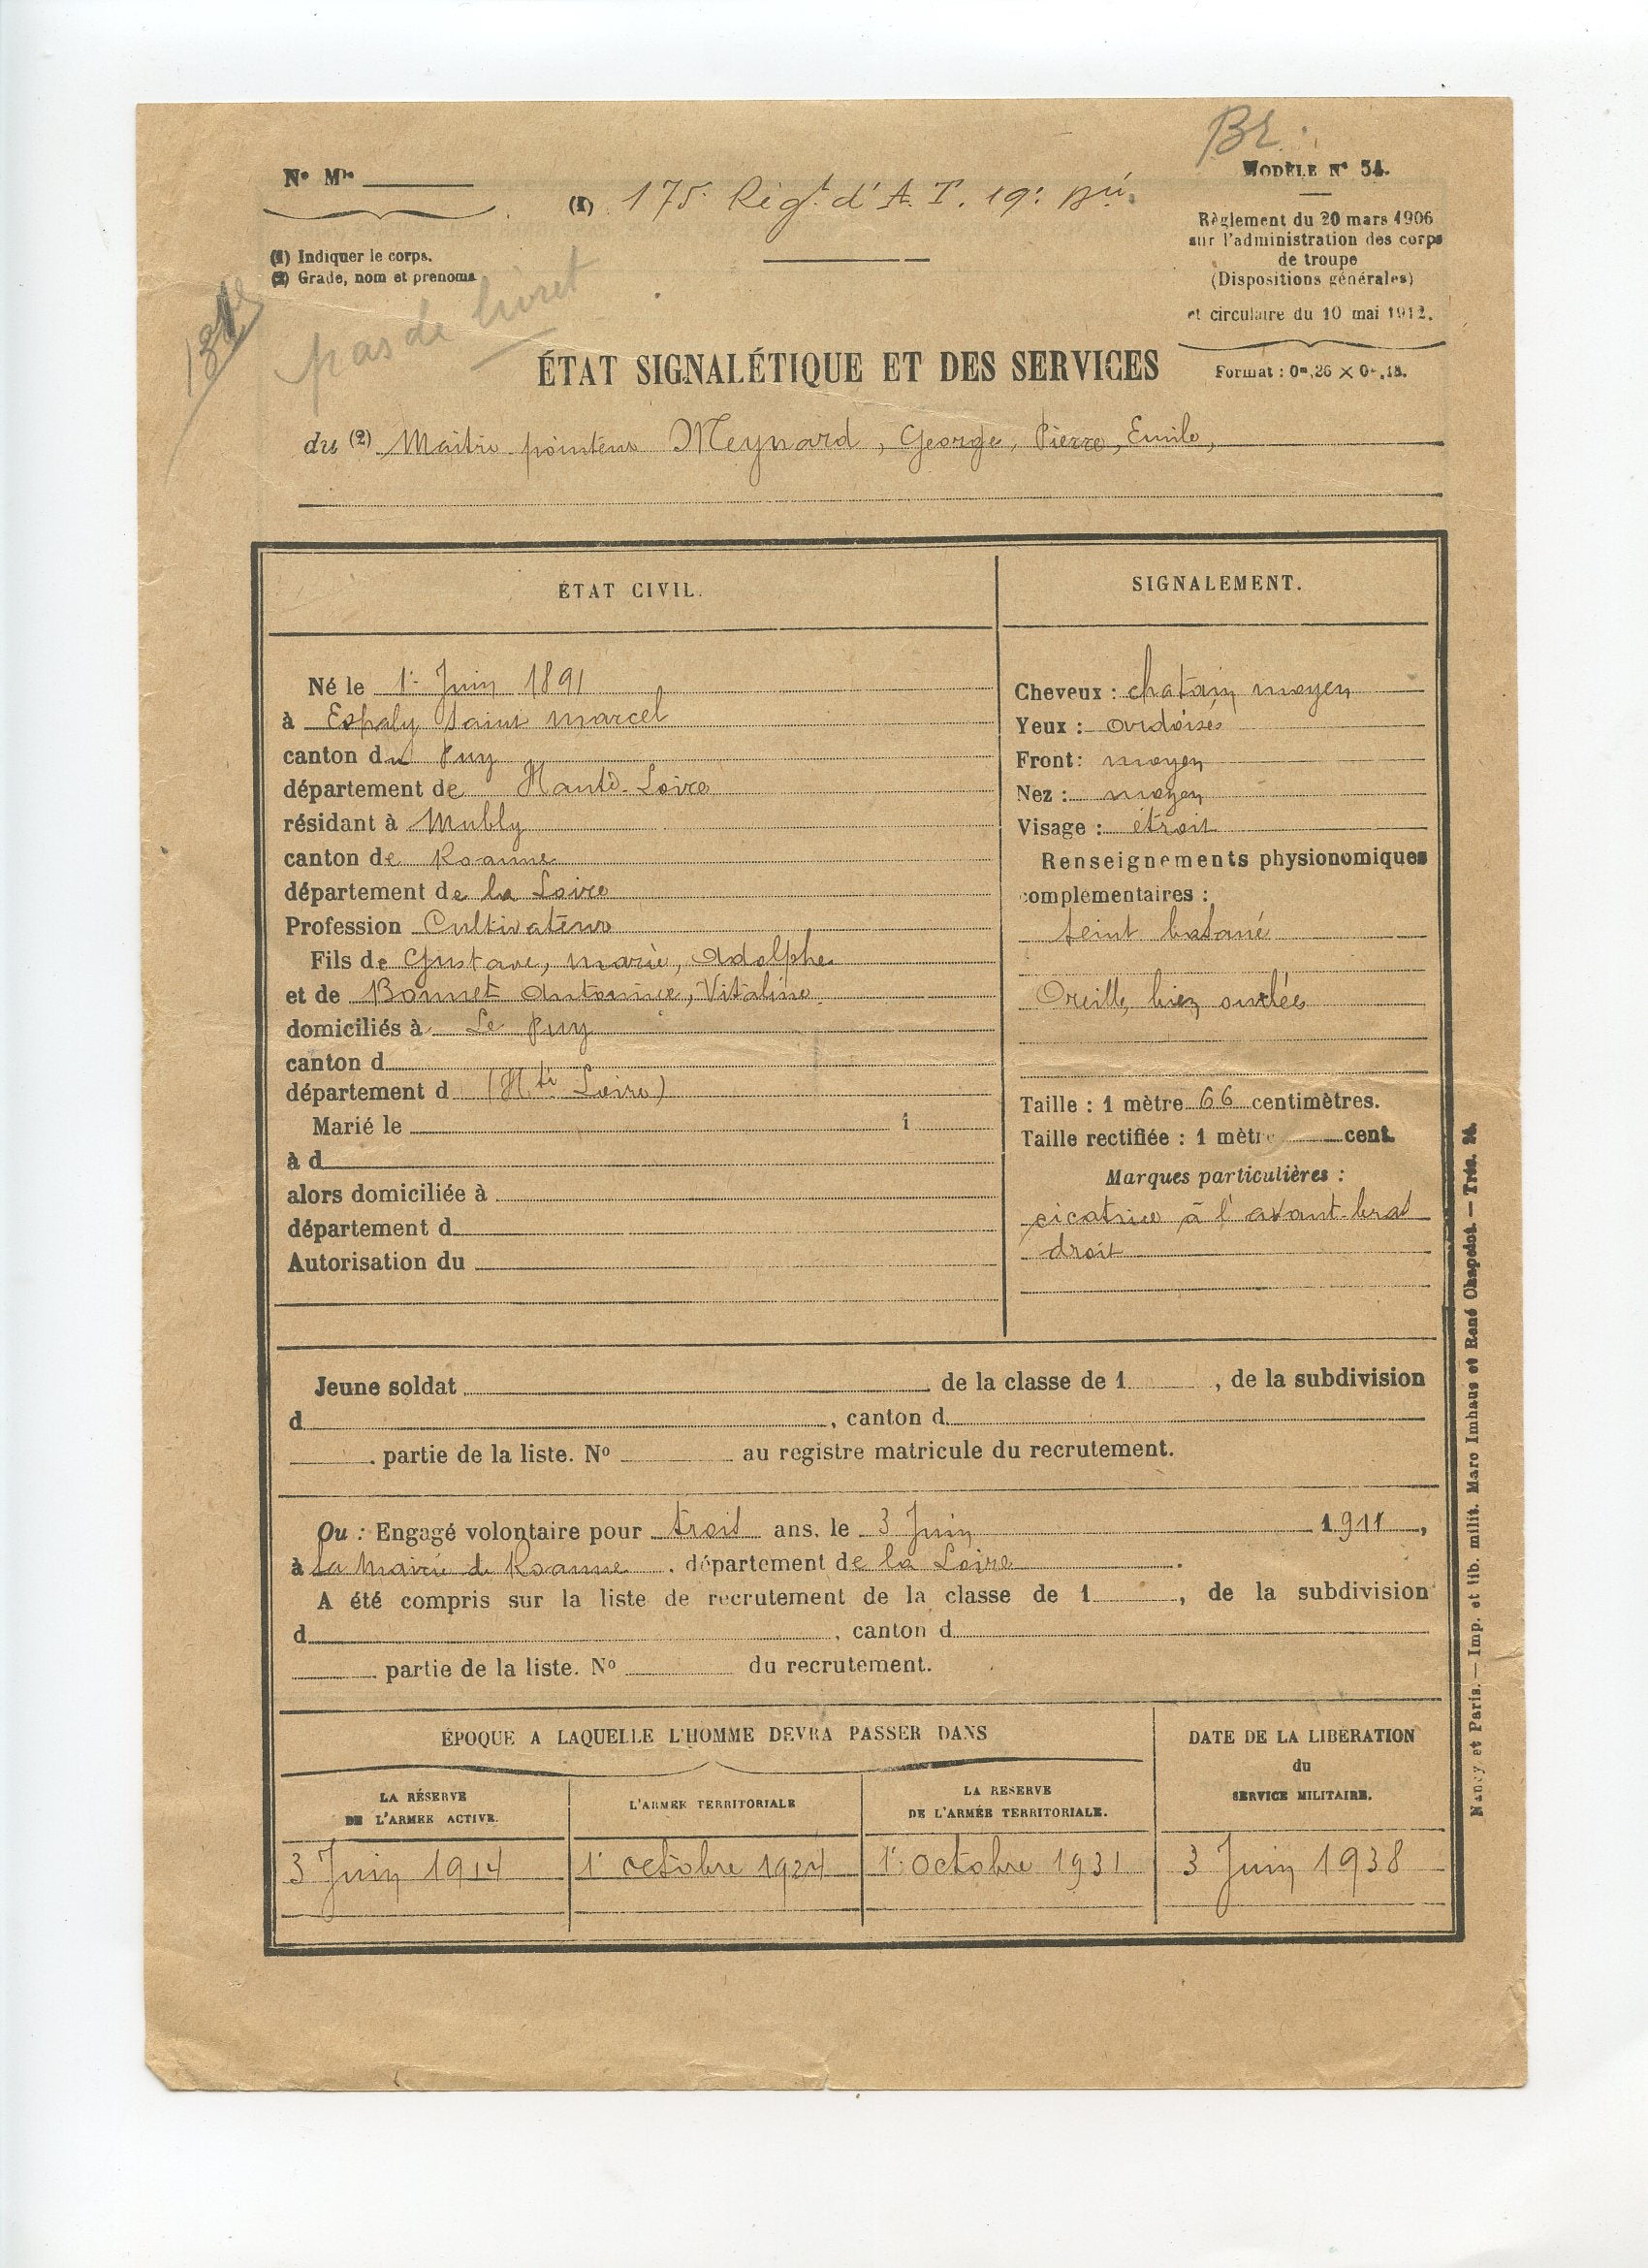 Br.
N° M^le
(1) 175^e Rég^t. d'A. T. 19^e B^ie.
MODÈLE N° 54.
Règlement du 20 mars 1906
sur l'administration des corps
de troupe
(Dispositions générales)
et circulaire du 10 mai 1912.
Format : 0^m,26 × 0^m,18.
(1) Indiquer le corps.
(2) Grade, nom et prénoms
pas de livret
ÉTAT SIGNALÉTIQUE ET DES SERVICES
du (2) Maître pointeur Meynard, George, Pierre, Emile,
ÉTAT CIVIL.
Né le 1^er Juin 1891
à Espaly Saint marcel
canton du Puy
département de Haute-Loire
résidant à Mably
canton de Roanne
département de la Loire
Profession Cultivateur
Fils de Gustave, marie, Adolphe
et de Bonnet Antonine, Vitaline
domiciliés à Le Puy
canton d
département d (H^te Loire)
Marié le 1
à d
alors domiciliée à
département d
Autorisation du
SIGNALEMENT.
Cheveux : chatain moyen
Yeux : ardoisés
Front : moyen
Nez : moyen
Visage : étroit
Renseignements physionomiques
complémentaires :
teint basané
Oreille bien ourlées
Taille : 1 mètre 66 centimètres.
Taille rectifiée : 1 mètre cent.
Marques particulières :
cicatrice à l'avant-bras
droit
Jeune soldat de la classe de 1 , de la subdivision
d , canton d
partie de la liste. N° au registre matricule du recrutement.
Ou : Engagé volontaire pour trois ans, le 3 Juin 1911,
à la Mairie de Roanne, département de la Loire.
A été compris sur la liste de recrutement de la classe de 1 , de la subdivision
d , canton d
partie de la liste. N° du recrutement.
ÉPOQUE A LAQUELLE L'HOMME DEVRA PASSER DANS
LA RÉSERVE
DE L'ARMÉE ACTIVE.
3 Juin 1914
L'ARMÉE TERRITORIALE
1^er octobre 1924
LA RÉSERVE
DE L'ARMÉE TERRITORIALE.
1^er Octobre 1931
DATE DE LA LIBÉRATION
du
SERVICE MILITAIRE.
3 Juin 1938
Nancy et Paris. — Imp. et lib. milit. Marc Imhaus et René Chapelot. — Trés. 24.